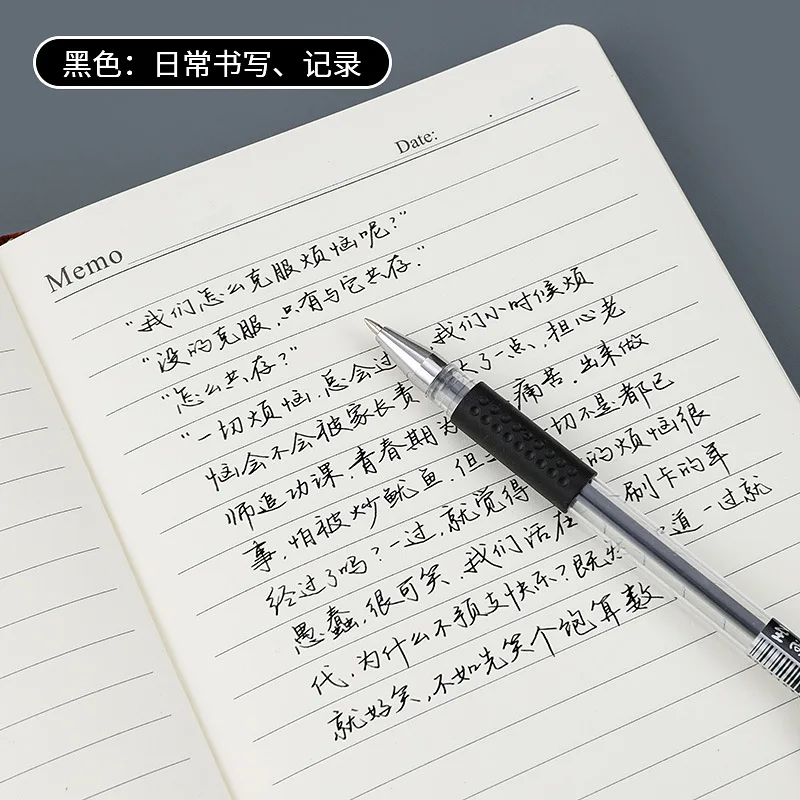 黑色：日常书写、记录
Date:
Memo
“我们怎么克服烦恼呢？”
“没的克服，只有与它共存。”
“怎么共存？”
“一切烦恼，总会过 我们小时候烦
恼会不会被家长责 大了一点，担心老
师追功课，青春期为 痛苦，出来做
事，怕被炒鱿鱼，但 一切不是都已
经过了吗？一过，就觉得 的烦恼很
愚蠢，很可笑，我们活在 刷卡的年
代，为什么不预支快乐？既然 道一过就
就好笑，不如先笑个饱算数